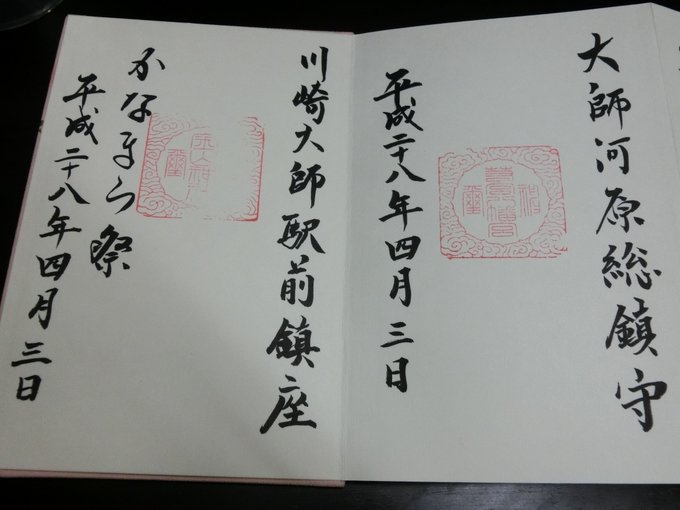 大師河原総鎮守
平成二十八年四月三日
川崎大師駅前鎮座
かなまら祭
平成二十八年四月三日